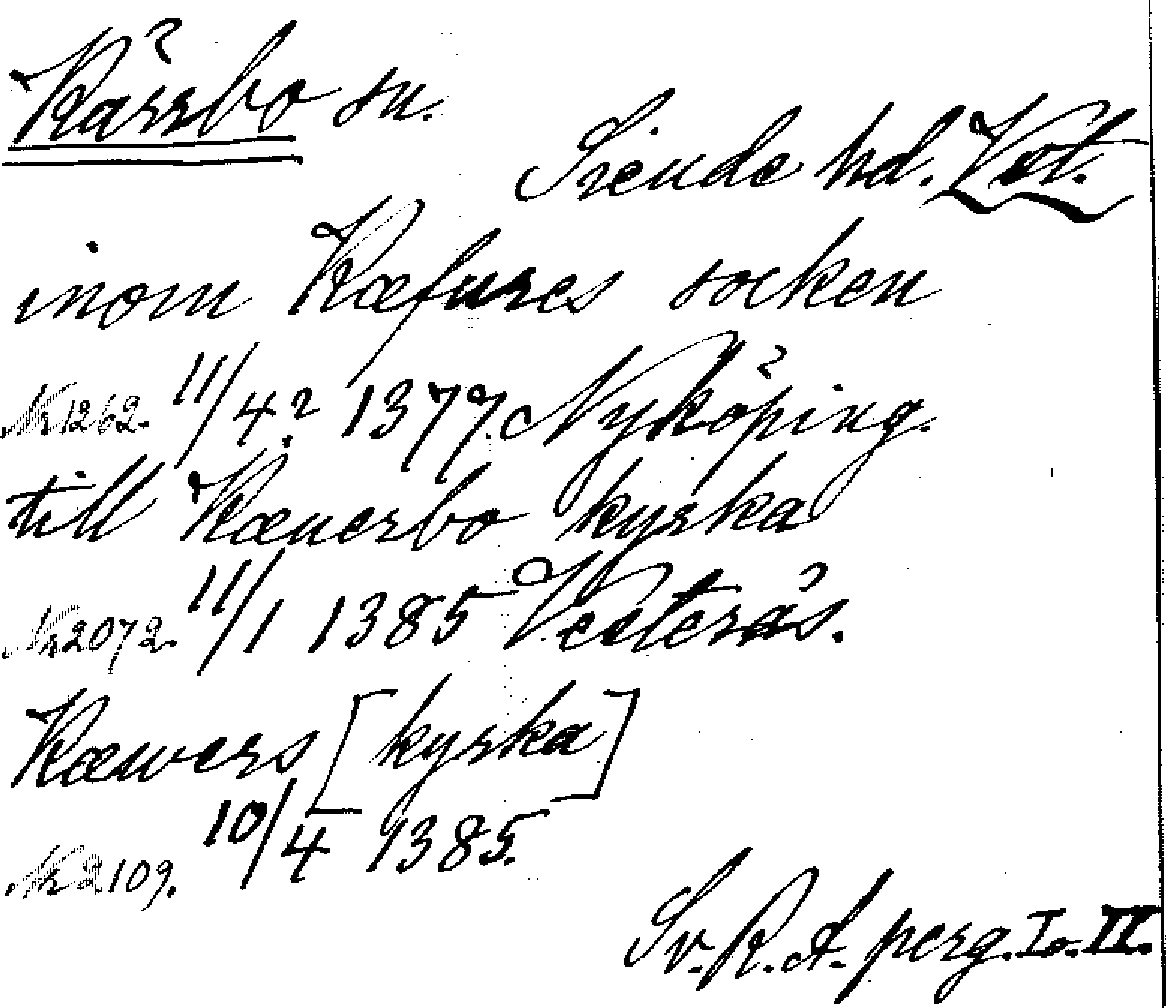 Kärrbo sn.
Siende hd. Vst.
inom Kæfures socken
Nr 1262. 11/4? 1377. Nyköping.
till Kæuerbo kyrka
Nr 2072. 11/1 1385 Vesterås.
Kæwers [kyrka]
Nr 2109. 10/4 1385.
Sv. R. A. perg. I. II.